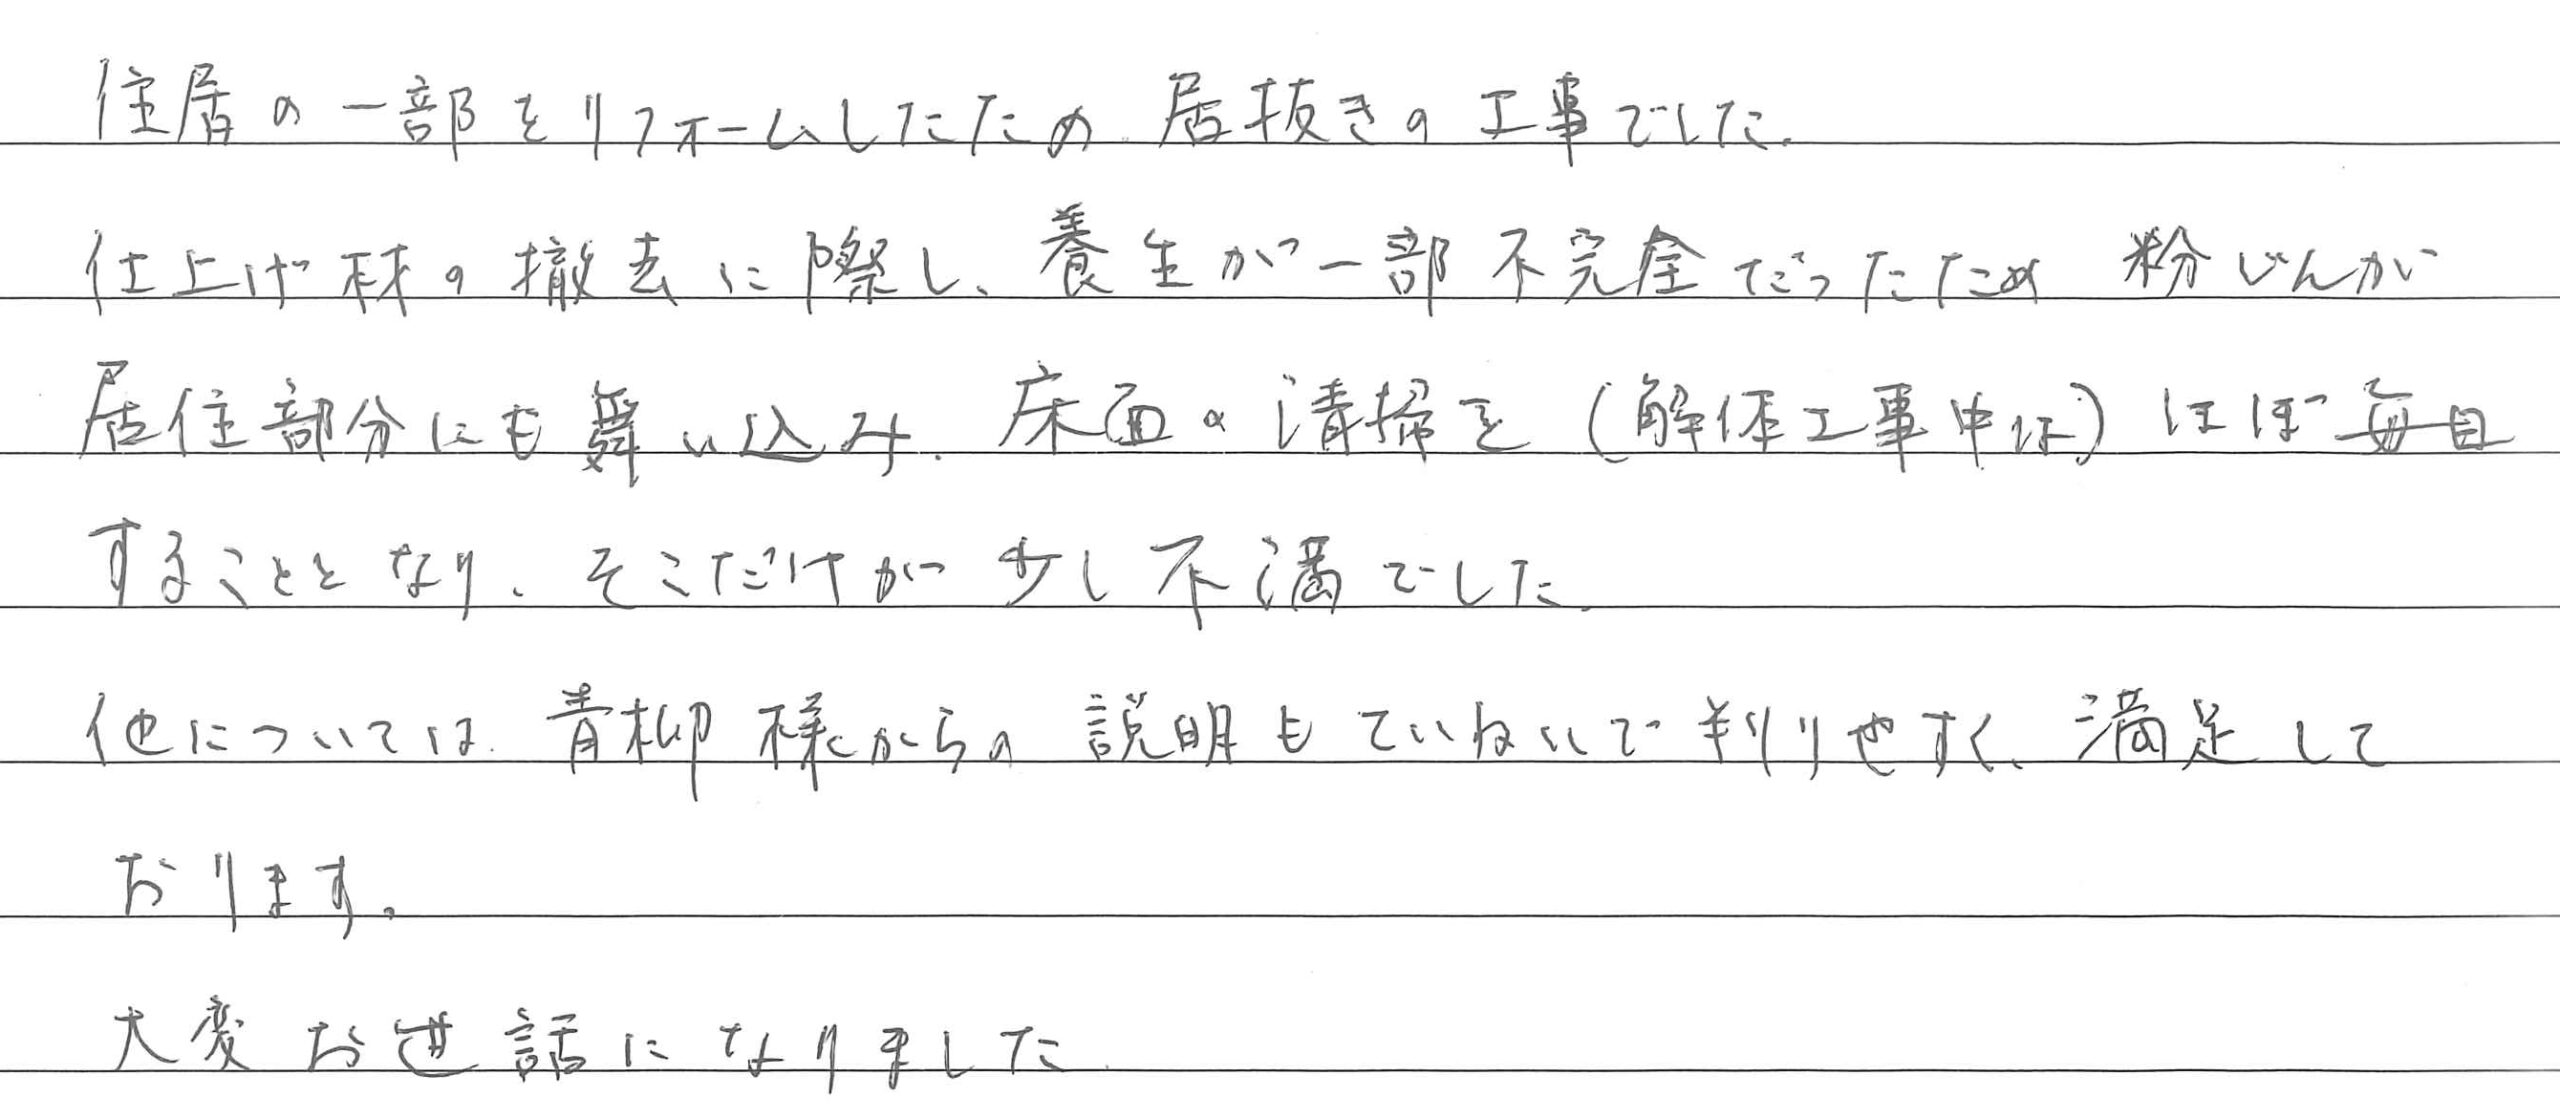 住居の一部をリフォームしたため、居抜きの工事でした。
仕上げ材の撤去に際し、養生が一部不完全だったため粉じんが
居住部分にも舞い込み、床面の清掃を(解体工事中は)ほぼ毎日
することとなり、そこだけが少し不満でした。
他については、青柳様からの説明もていねいで判りやすく、満足して
おります。
大変お世話になりました